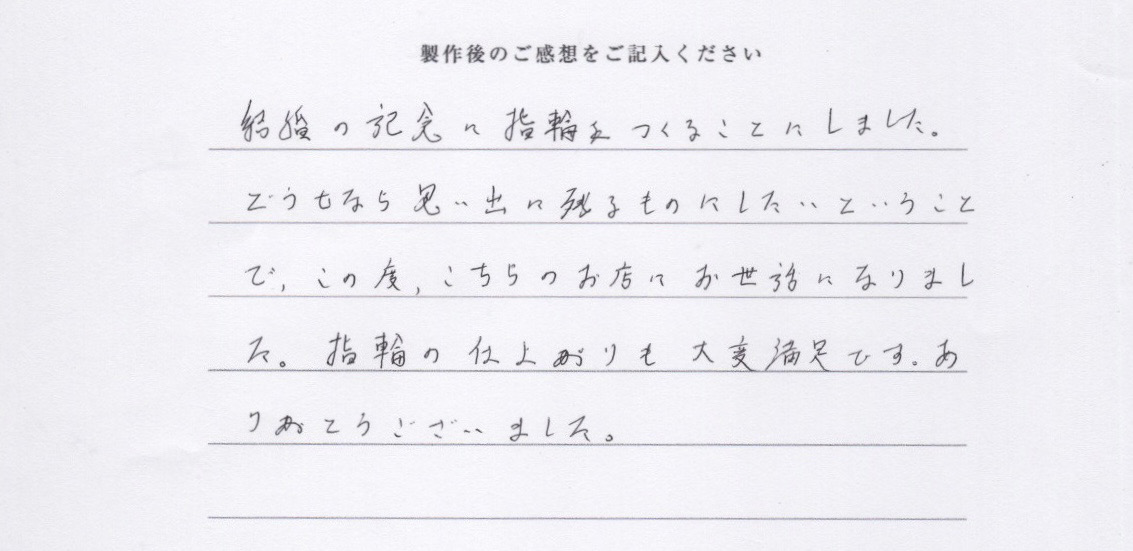 製作後のご感想をご記入ください
結婚の記念に指輪をつくることにしました。
どうもなら思い出に残るものにしたいということ
で,この度,こちらのお店にお世話になりまし
た。指輪の仕上がりも大変満足です。あ
りがとうございました。